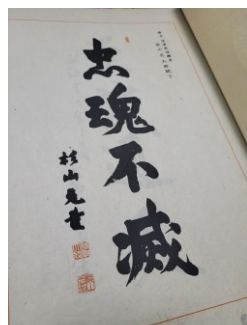 忠魂不滅
杉山元書